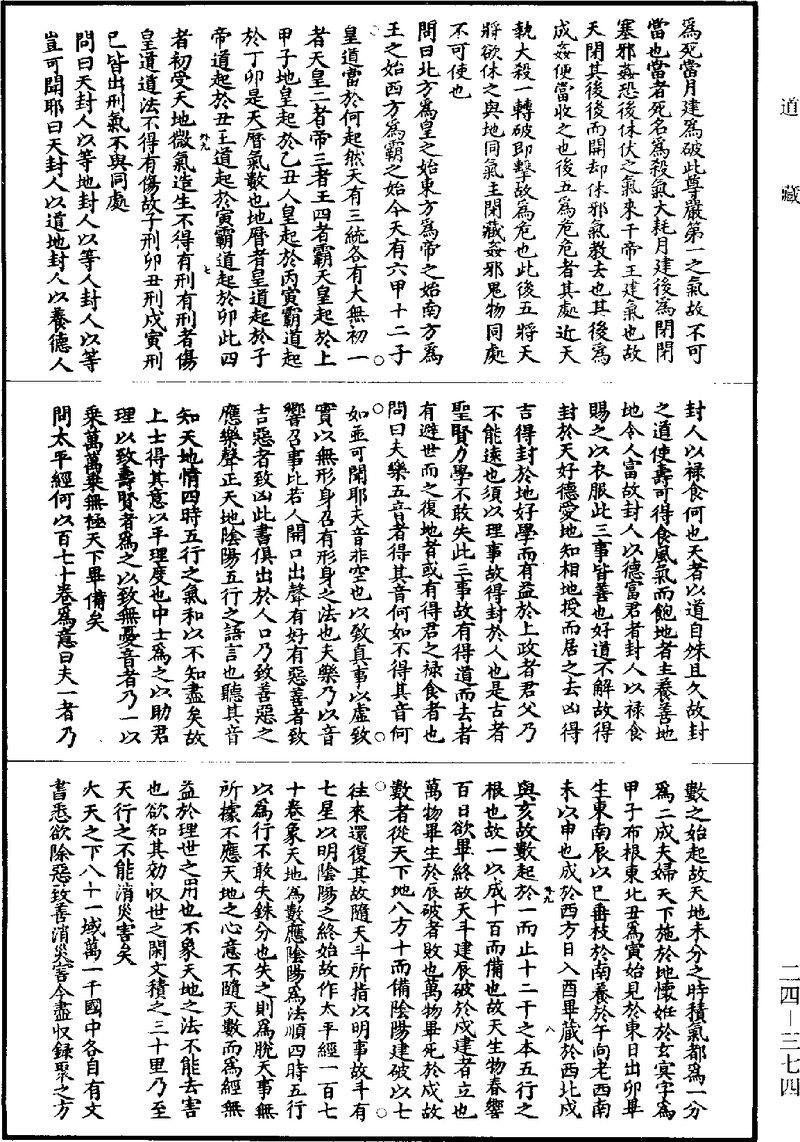 道藏
為死當月建為破此尊嚴第一之氣故不可
當也當者死名為殺氣大耗月建後為閉閉
塞邪姦恐後休伏之氣來干帝王建氣也故
天閉其後後而開却休邪氣教去也其後為
成姦便當收之也後五為危危者其處近天
執大殺一轉破即擊故為危也此後五將天
將欲休之與地同氣主閉藏姦邪鬼物同處
不可使也
問曰北方為皇之始東方為帝之始南方為
王之始西方為霸之始今天有六甲十二子
皇道當於何起然天有三統各有大無初一
者天皇二者帝三者王四者霸天皇起於上
甲子地皇起於乙丑人皇起於丙寅霸道起
於丁卯是天曆氣數也地曆者皇道起於子
帝道起於丑王道起於寅霸道起於卯此四
者初受天地微氣造生不得有刑有刑者傷
皇道道法不得有傷故子刑卯丑刑戌寅刑
巳皆出刑氣不與同處
問曰天封人以等地封人以等人封人以等
豈可聞耶曰天封人以道地封人以養德人
封人以祿食何也天者以道自殊且久故封
之道使壽可得食風氣而飽地者主養善地
地令人富故封人以德富君者封人以祿食
賜之以衣服此三事皆善也好道不解故得
封於天好德愛地知相地授而居之去凶得
吉得封於地好學而有益於上政者君父乃
不能遠也須以理事故得封於人也是古者
聖賢力學不敢失此三事故有得道而去者
有避世而之復地者或有得君之祿食者也
問曰夫樂五音者得其音何如不得其音何
如並可聞耶夫音非空也以致真事以虛致
實以無形身召有形身之法也夫樂乃以音
響召事比若人開口出聲有好有惡善者致
吉惡者致凶此書俱出於人口乃致善惡之
應樂聲正天地陰陽五行之語言也聽其音
知天地情四時五行之氣和以不知盡矣故
上士得其意以平理度也中士為之以助君
理以致壽賢者為之以致無憂音者乃一以
乘萬萬乘無極天下畢備矣
問太平經何以百七十卷為意曰夫一者乃
數之始起故天地未分之時積氣都為一分
為二成夫婦天下施於地懷姙於玄冥字為
甲子布根東北丑為寅始見於東日出卯畢
生東南辰以巳垂枝於南養於午向老西南
未以申也成於西方日入酉畢藏於西北戌
與亥故數起於一而止十二干之本五行之
根也故一以成十百而備也故天生物春響
百日欲畢終故天斗建辰破於戌建者立也
萬物畢生於辰破者敗也萬物畢死於戌故
數者從天下地八方十而備陰陽建破以七
往來還復其故隨天斗所指以明事故斗有
七星以明陰陽之終始故作太平經一百七
十卷象天地為數應陰陽為法順四時五行
以為行不敢失銖分也失之則為脫天事無
所據不應天地之心意不隨天數而為經無
益於理世之用也不象天地之法不能去害
也欲知其効收世之閑文積之三十里乃至
天行之不能消災害矣
大天之下八十一域萬一千國中各自有文
書悉欲除惡致善消災害今盡收録聚之方
外九
七
外九
八
二四—三七四